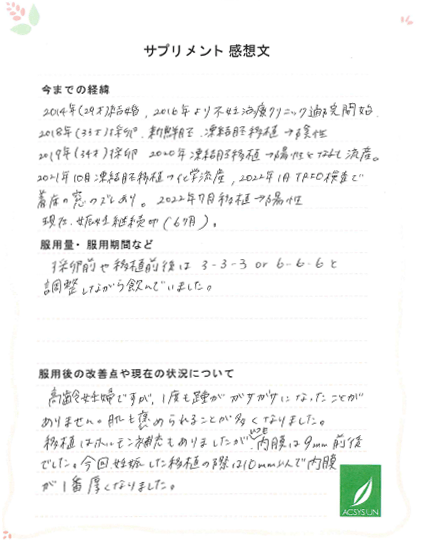 サプリメント 感想文
今までの経緯
2014年(29才)結婚、2016年より不妊治療クリニック通院開始
2018年(33才)採卵、新鮮胚、凍結胚移植→陰性
2019年(34才)採卵 2020年凍結胚移植→陽性となるも流産。
2021年10月凍結胚移植→化学流産、2022年1月TRIO検査で
着床の窓のズレあり。2022年7月移植→陽性
現在、妊娠継続中(6ヶ月)。
服用量・服用期間など
採卵前や移植前後は3-3-3 or 6-6-6と
調整しながら飲んでいました。
服用後の改善点や現在の状況について
高齢妊婦ですが、1度も踵がガサガサになったことが
ありません。肌も褒められることが多くなりました。
移植はホルモン補充もありましたが、いつも内膜は9mm前後
でした。今回妊娠した移植の際は10mm以上で内膜
が1番厚くなりました。
ACSYSUN